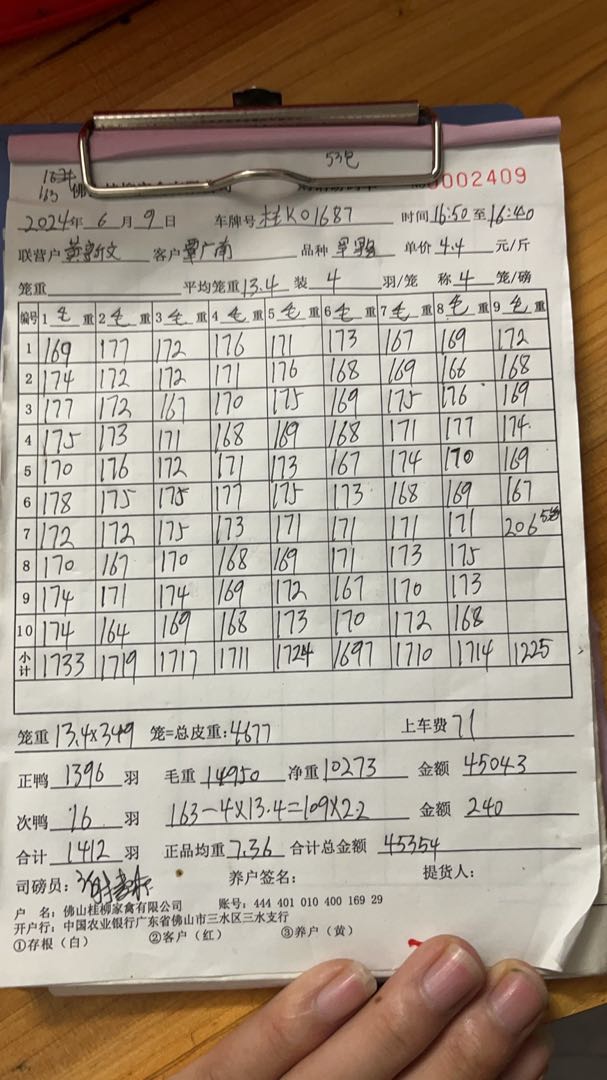 53包
0002409
2024年6月9日 车牌号 桂K01687 时间16:50至16:40
联营户 黄新文 客户 覃广南 品种 单价 4.4 元/斤
笼重 平均笼重13.4 装 4 羽/笼 称 4 笼/磅
编号 1 毛 重 2 毛 重 3 毛 重 4 毛 重 5 毛 重 6 毛 重 7 毛 重 8 毛 重 9 毛 重
1 169 177 172 176 171 173 167 169 172
2 174 172 172 171 176 168 169 166 168
3 177 172 167 170 175 169 175 176 169
4 175 173 171 168 169 168 171 177 174
5 170 176 172 171 173 167 174 170 169
6 178 175 175 177 175 173 168 169 167
7 172 172 175 173 171 171 171 171 206 5笼
8 170 167 170 168 169 171 173 175
9 174 171 174 169 172 167 170 173
10 174 164 169 168 173 170 172 168
小计 1733 1719 1717 1711 1724 1697 1710 1714 1225
笼重 13.4×349 笼=总皮重:4677 上车费 71
正鸭 1396 羽 毛重 14950 净重 10273 金额 45043
次鸭 16 羽 163-4×13.4=109×2.2 金额 240
合计 1412 羽 正品均重 7.36 合计总金额 45354
司磅员: 养户签名: 提货人:
户 名:佛山桂柳家禽有限公司 账号:444 401 010 400 169 29
开户行:中国农业银行广东省佛山市三水区三水支行
①存根(白) ②客户(红) ③养户(黄)